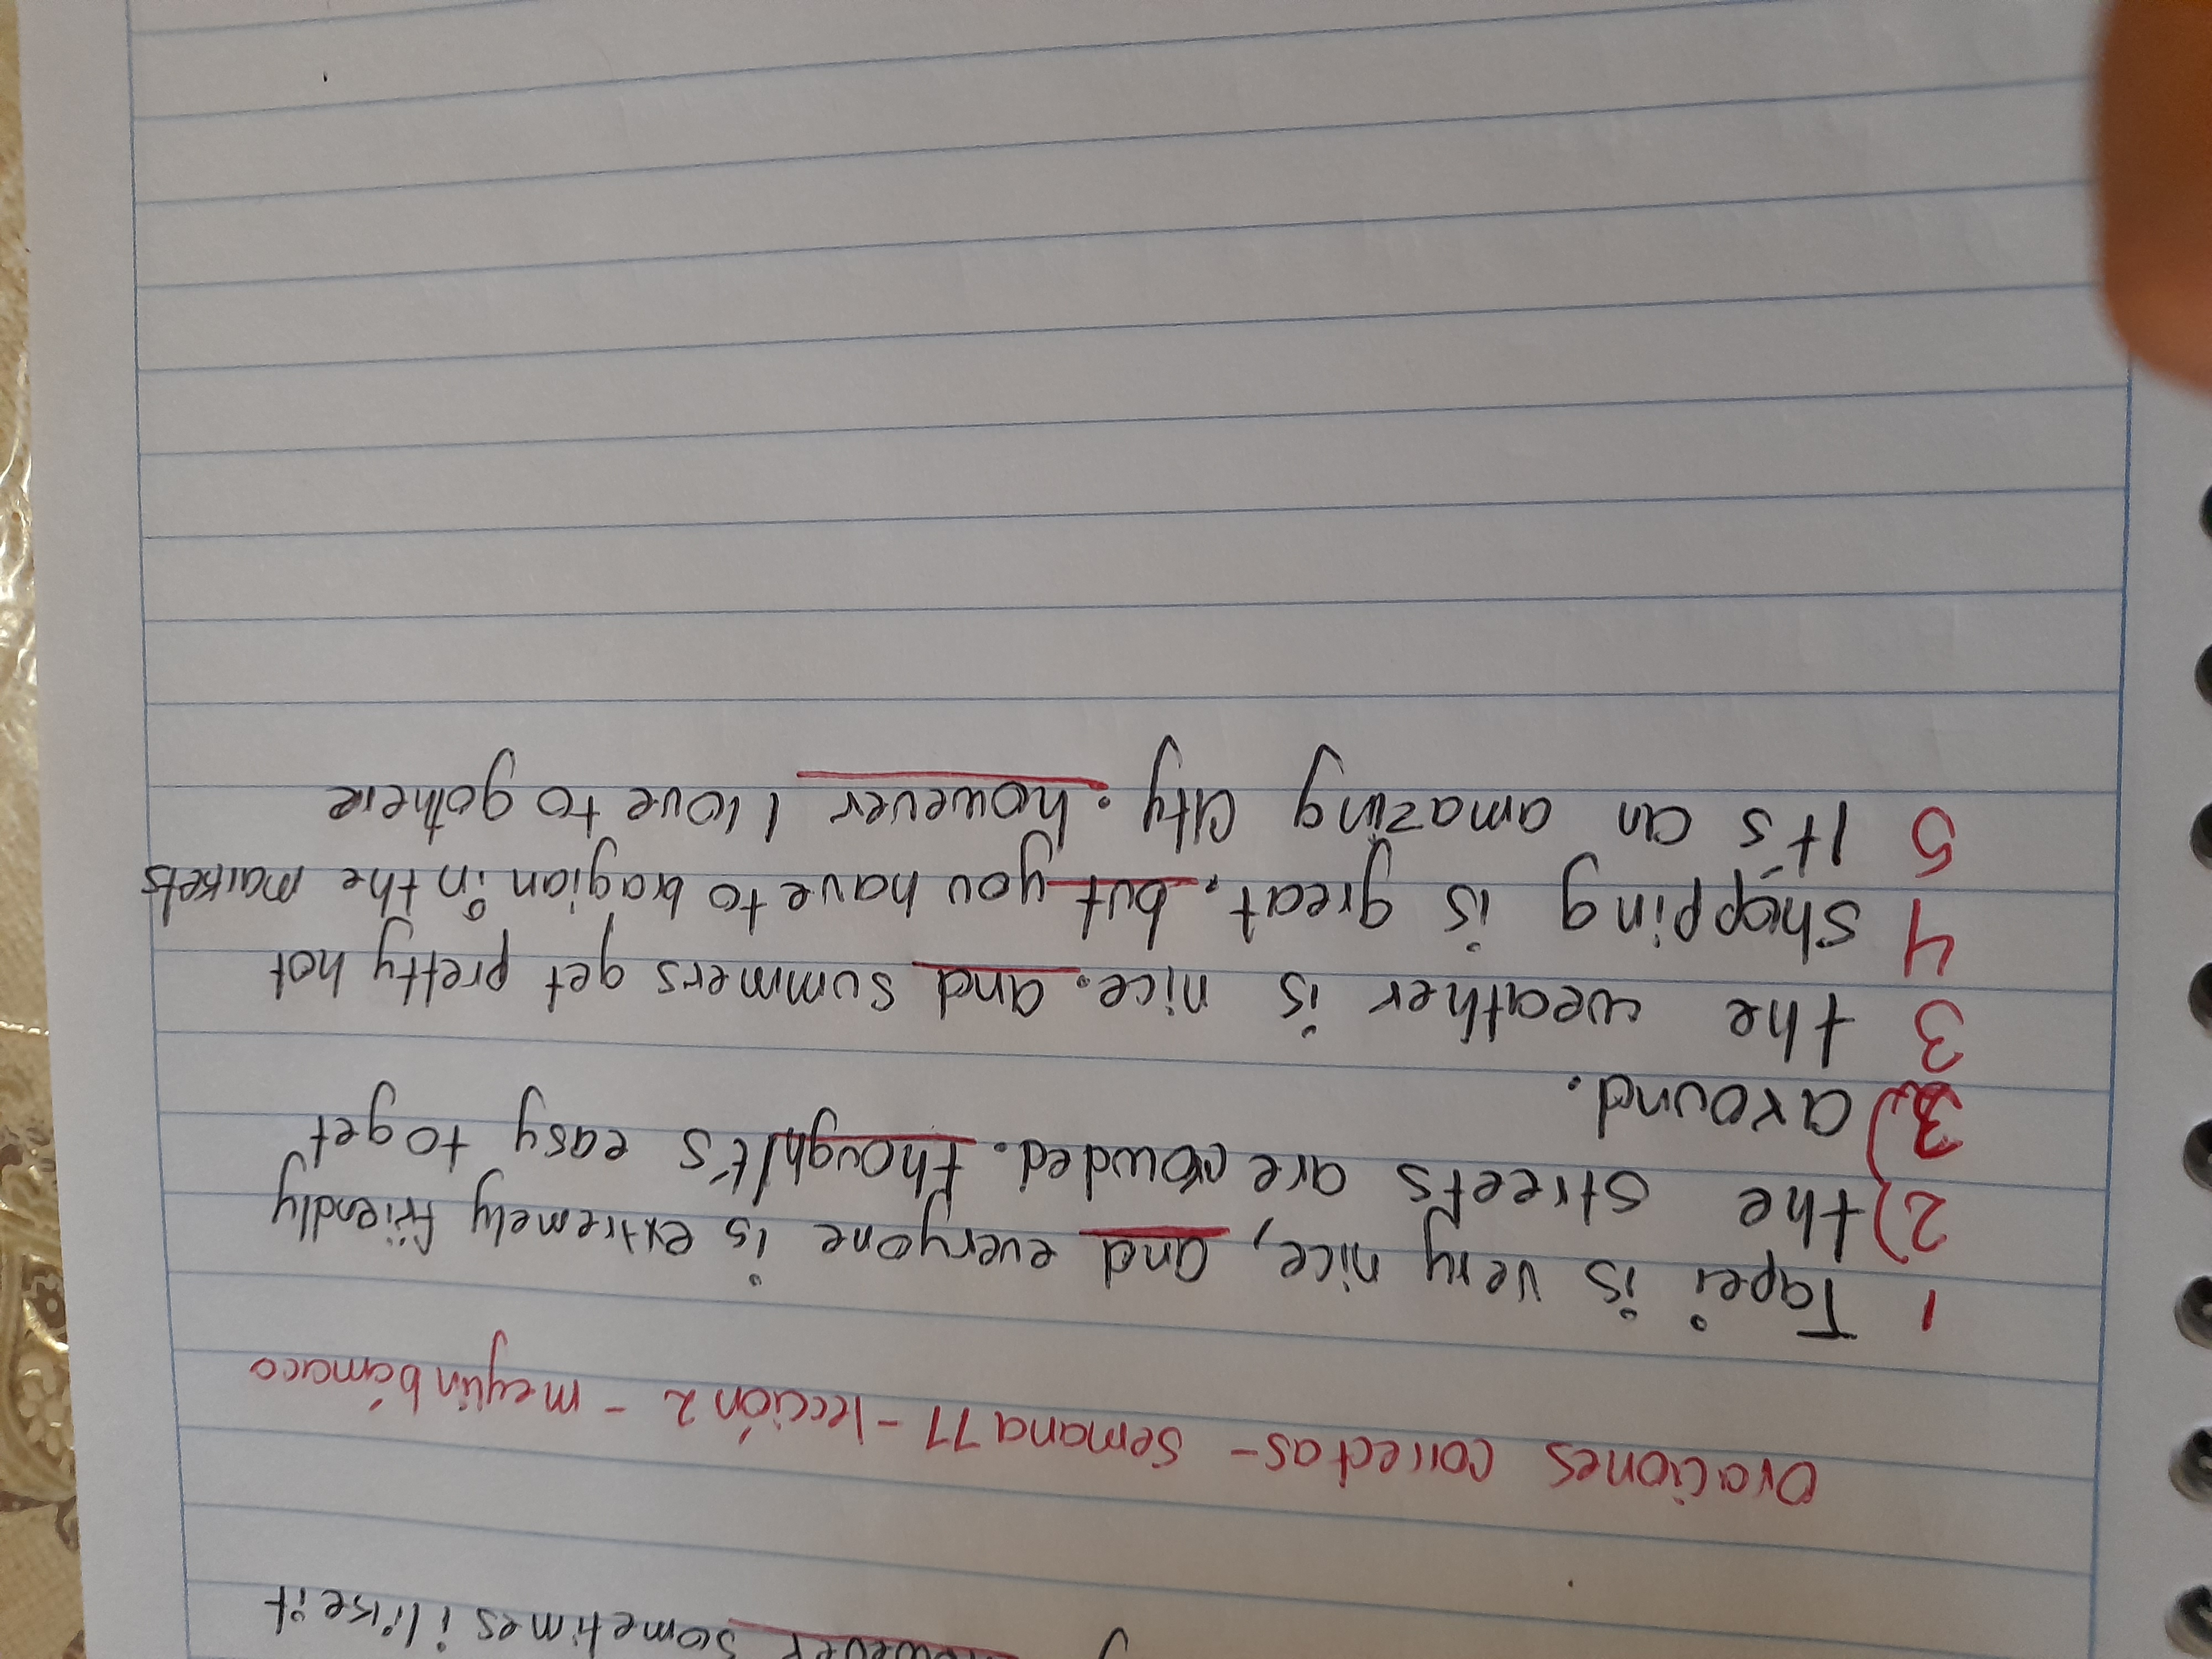 sometimes i like it
Oraciones correctas - Semana 11 - lección 2 - meylin bamaco
1 Tapei is very nice, and everyone is extremely friendly
2) the streets are crowded. though It's easy to get
3.) around.
3 the weather is nice. and summers get pretty hot
4 shopping is great. but you have to bragian in the markets
5 It's an amazing city. however I love to gothere